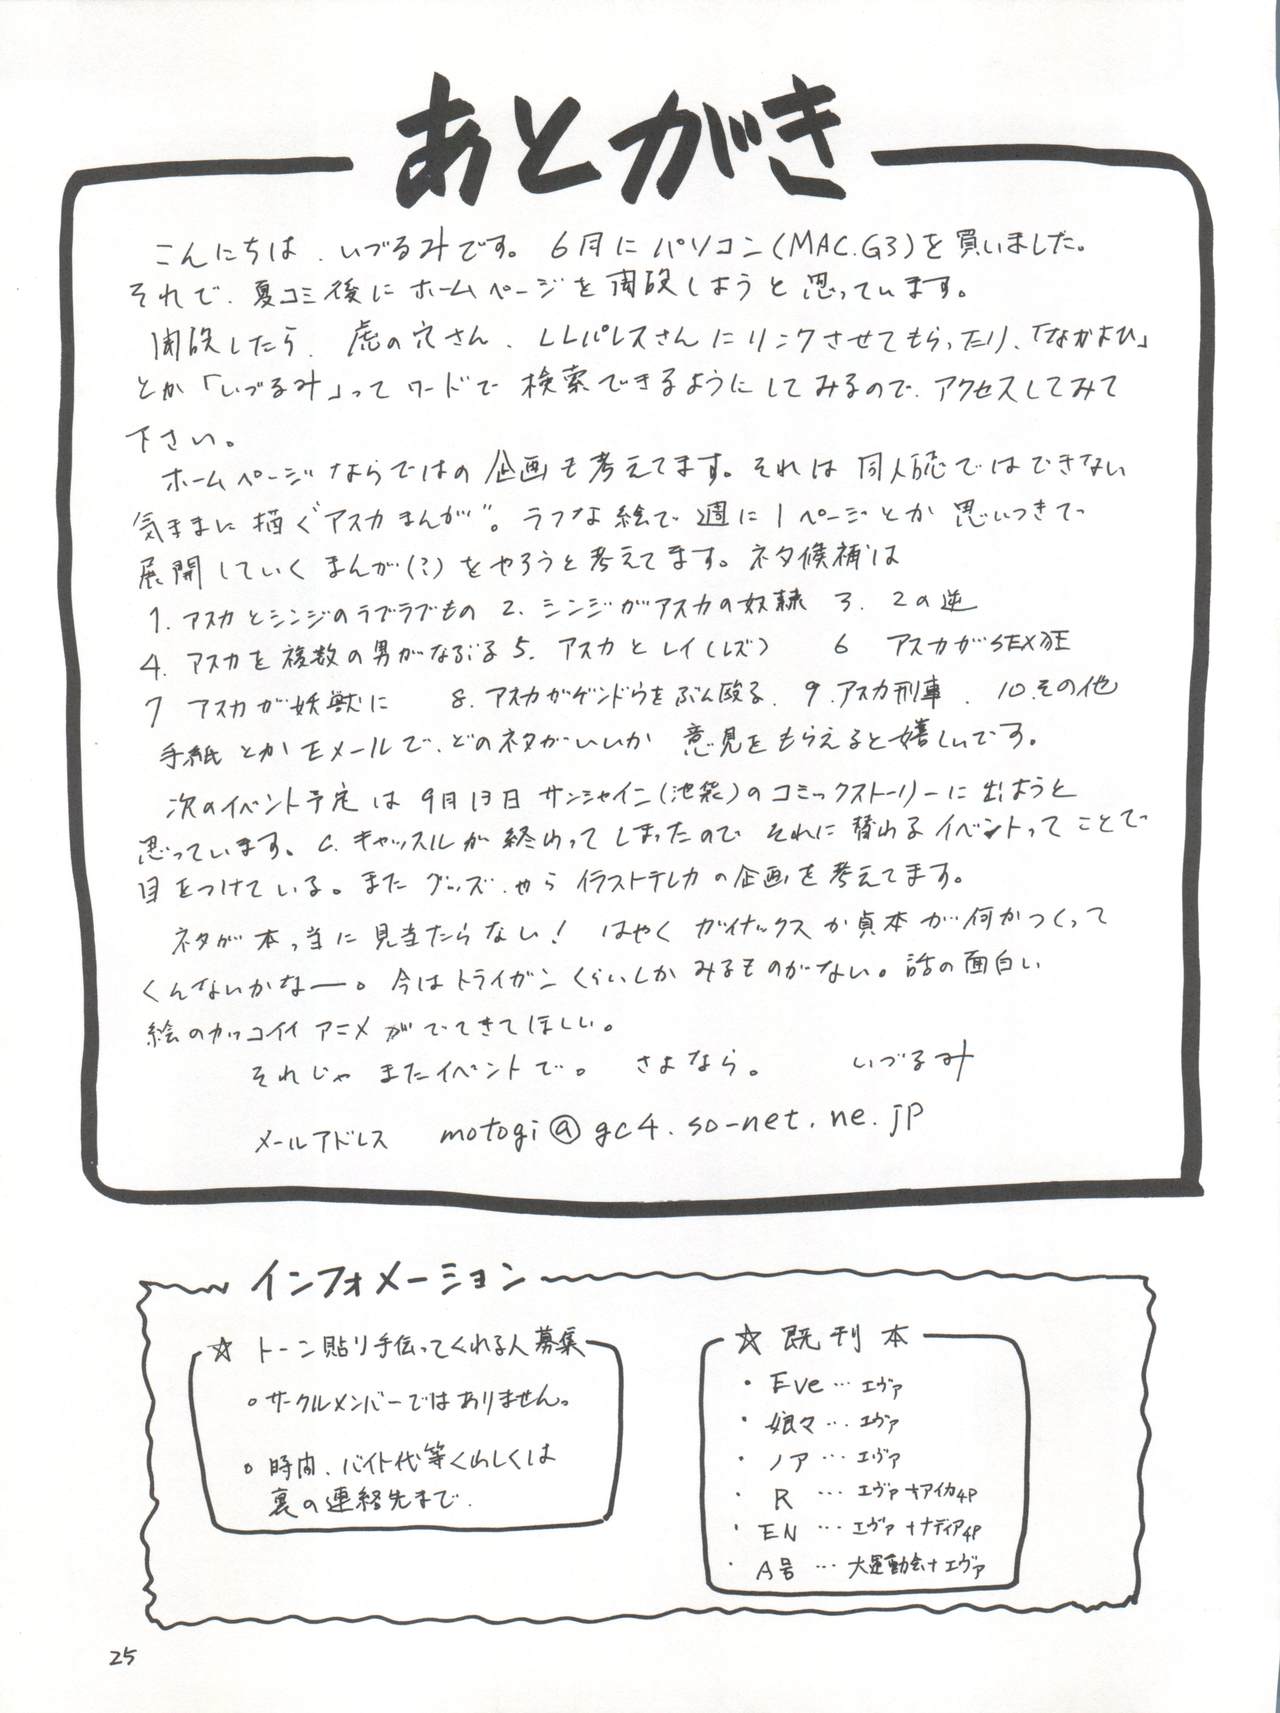 あとがき
こんにちは、いづるみです。6月にパソコン(MAC.G3)を買いました。
それで、夏コミ後にホームページを開設しようと思っています。
開設したら、虎の穴さん、LLパレスさんにリンクさせてもらったり、「なかよひ」
とか「いづるみ」ってワードで検索できるようにしてみるので、アクセスしてみて
下さい。
ホームページならではの企画も考えてます。それは同人誌ではできない
気ままに描く"アスカまんが"。ラフな絵で週に1ページとか思いつきで
展開していくまんが(?)をやろうと考えてます。ネタ候補は
1. アスカとシンジのラブラブもの 2. シンジがアスカの奴隷 3. 2の逆
4. アスカを複数の男がなぶる 5. アスカとレイ(レズ) 6 アスカがSEX狂
7 アスカが妖獣に 8. アスカがゲンドウをぶん殴る. 9. アスカ刑事. 10. その他
手紙とかEメールで、どのネタがいいか 意見をもらえると嬉しいです。
次のイベント予定は9月13日サンシャイン(池袋)のコミックストーリーに出ようと
思っています。C.キャッスルが終わってしまったのでそれに替わるイベントってことで
目をつけている。またグッズ、やらイラストテレカの企画を考えてます。
ネタが本っ当に見当たらない! はやくガイナックスか貞本が何かつくって
くんないかなー。今はトライガンくらいしかみるものがない。話の面白い
絵のカッコイイアニメがでてきてほしい。
それじゃまたイベントで。 さよなら。 いづるみ
メールアドレス motogi@gc4.so-net.ne.jp
インフォメーション
☆ トーン貼り手伝ってくれる人募集
○ サークルメンバーではありません。
○ 時間、バイト代等くわしくは
裏の連絡先まで.
☆ 既刊本
・ Eve … エヴァ
・ 娘々 … エヴァ
・ ノア … エヴァ
・ R … エヴァ+アイカ4P
・ EN … エヴァ+ナディア4P
・ A号 … 大運動会+エヴァ
25